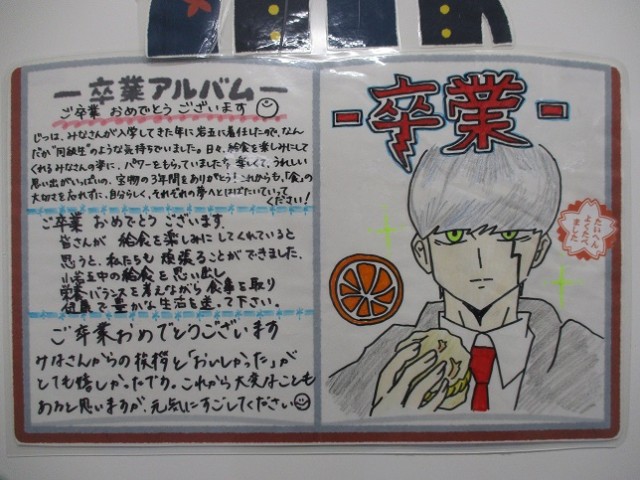 －卒業アルバム－
ご卒業 おめでとう ございます
じつは、みなさんが入学してきた年に岩主に着任したので、なん
だか"同級生"のような気持ちでいました。日々、給食を楽しみにして
くれるみなさんの姿に、パワーをもらっていました。楽しくて、うれしい
思い出がいっぱいの、宝物の3年間をありがとう！これからも、「食」の
大切さを忘れずに、自分らしく、それぞれの夢へとはばたいていって
ください！
ご卒業 おめでとう ございます。
皆さんが 給食を楽しみにしてくれていると
思うと、私たちも 頑張ることができました。
中の給食を思い出し
栄養バランスを考えながら食事を取り
健康で豊かな生活を送って下さい。
ご卒業おめでとうございます
みなさんからの挨拶と「おいしかった」が
とても嬉しかったです。これから大変なことも
あると思いますが、元気にすごしてください
－卒業－
たいへん
よくたべ
ました